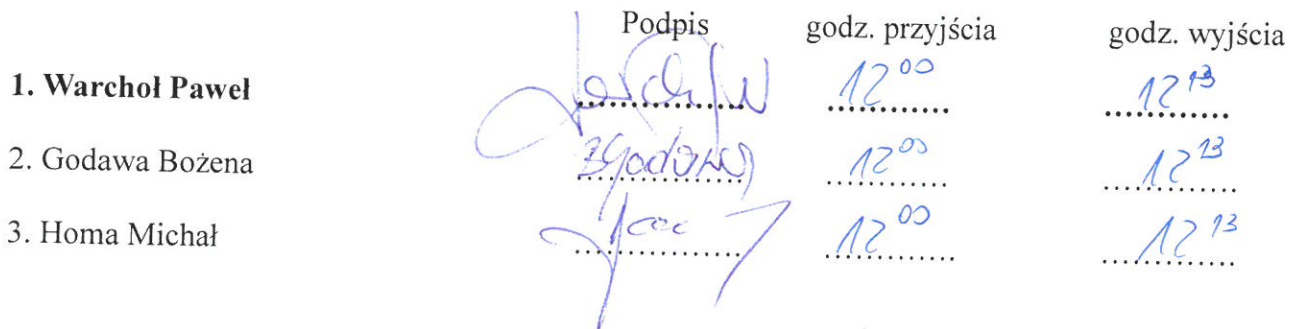 Podpis godz. przyjścia godz. wyjścia
1. Warchoł Paweł 12⁰⁰ 12¹³
2. Godawa Bożena 12⁰⁰ 12¹³
3. Homa Michał 12⁰⁰ 12¹³